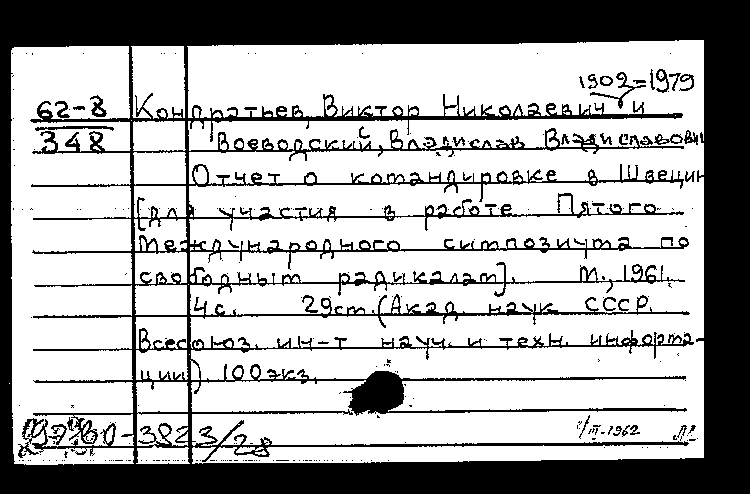 1902-1979
62-8 Кондратьев, Виктор Николаевич и
348 Воеводский, Владислав Владиславович
Отчет о командировке в Швецию
[для участия в работе Пятого
Международного симпозиума по
свободным радикалам]. М., 1961.
4с. 29см. (Акад. наук СССР.
Всесоюз. ин-т науч. и техн. информа-
ции). 100экз.
-3823/28
1/III-1962